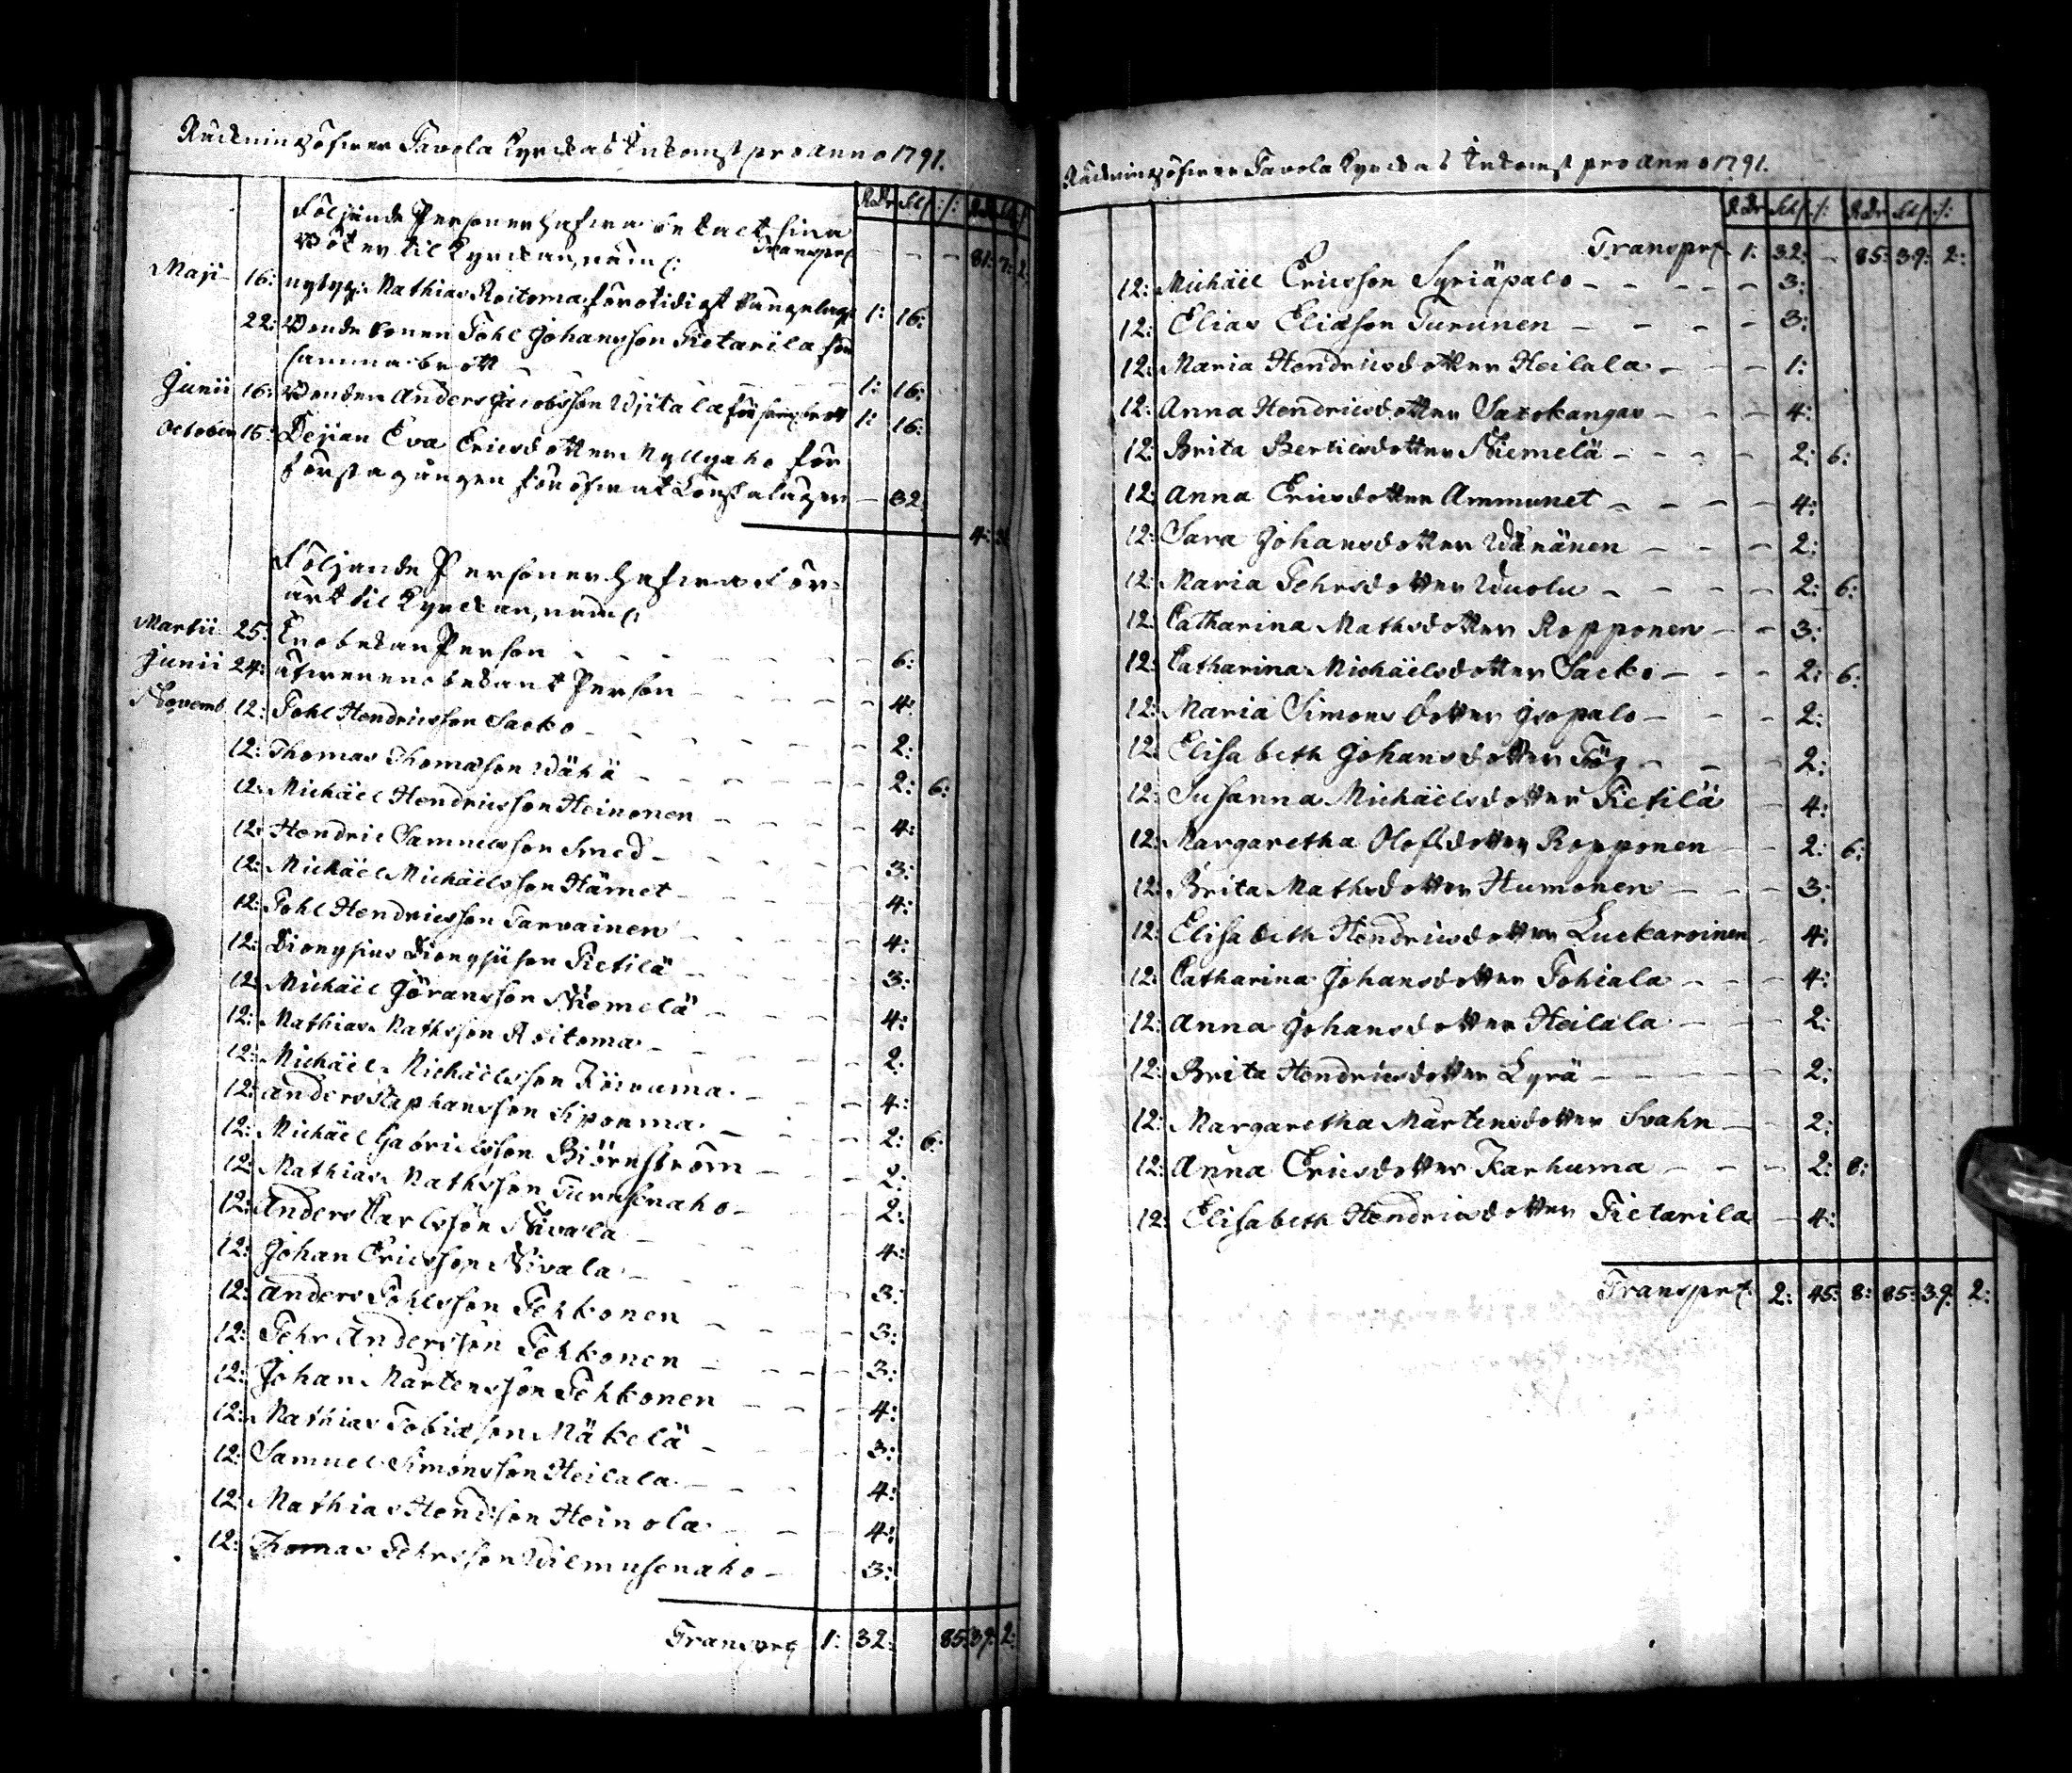 Räckning öfwer Pavola Kyrckas Inkomst pro anno 1791.
Rdr Sk. /: Rd. Sk. /:
Följande Personer hafwa betalt sina
Böter til Kyrckan, näml: Transport — — — 81: 7: 2:
Maji 16: nybyg: Mathias Roitoma för otidigt sängelag 1: 16:
22: Bonde sonen Pohl Johansson Pietarila för
samma brott — 1: 16:
Junii 16: Bonden Anders Jacobsson Wjitala för samma brott 1: 16:
October 15: Pejian Eva Ericsdotter Myllyaho för
första gången för öfwat Lönskaläger — 32:
4: 32
Följande Personer hafwa för-
ärt til Kyrckan, näml:
Martii 25: En obekan Person — 6:
Junii 24: äfwen en obekant Person — 4:
Novemb. 12: Pohl Hendricsson Sacko — 2:
12: Thomas Thomasson Wähä — 2: 6:
12: Michäel Hendricsson Heinonen — 4:
12: Hendric Samuelsson Smed — 3:
12: Michäel Michäelsson Hämet — 4:
12: Pohl Hendricsson Tarvainen — 4:
12: Dionysius Dionysiison Pietilä — 3:
12: Michäel Göransson Niemelä — 4:
12: Mathias Mathsson Roitoma — 2:
12: Michäel Michäelsson Köiruma — 4:
12: Anders Staphansson Siponma — 2: 6:
12: Michäel Gabrielsson Björnström — 2:
12: Mathias Mathsson Turusenaho — 2:
12: Anders Carlsson Nivala — 4:
12: Johan Ericsson Nivala — 3:
12: Anders Pohlsson Pehkonen — 3:
12: Pehr Andersson Pehkonen — 3:
12: Johan Mårtensson Pehkonen — 4:
12: Mathias Tobiasson Mäkelä — 3:
12: Samuel Simonsson Heilala — 4:
12: Mathias Hendsson Heinola — 4:
12: Thomas Pehrsson Wilmusenaho — 3:
Transport 1: 32: 85: 39: 2:
Räckning öfwer Pavola Kyrckas Inkomst pro anno 1791.
Rdr Sk. /: Rdr Sk. /:
Transport 1: 32: — 85: 39: 2:
12: Michäel Ericsson Syriäpalo — 3:
12: Elias Eliasson Turunen — 3:
12: Maria Hendricsdotter Heilala — 1:
12: Anna Hendricsdotter Saxokangas — 4:
12: Brita Bertilsdotter Niemelä — 2: 6:
12: Anna Ericsdotter Ammunet — 4:
12: Sara Johansdotter Wänänen — 2:
12: Maria Pehrsdotter Wuolu — 2: 6:
12: Catharina Mathsdotter Ropponen — 3:
12: Catharina Michäelsdotter Sacko — 2: 6:
12: Maria Simonsdotter Isopalo — 2:
12: Elisabeth Johansdotter Fög — 2:
12: Susanna Michäelsdotter Pietilä — 4:
12: Margaretha Olofsdotter Ropponen — 2: 6:
12: Brita Mathsdotter Humonen — 3:
12: Elisabeth Hendricsdotter Luckaroinen — 4:
12: Catharina Johansdotter Pohiala — 4:
12: Anna Johansdotter Heilala — 2:
12: Brita Hendricsdotter Lyrä — 2:
12: Margaretha Mårtensdotter Svahn — 2:
12: Anna Ericsdotter Karhuma — 2: 8:
12: Elisabeth Hendricsdotter Pietarila — 4:
Transport 2: 45: 8: 85: 39: 2: